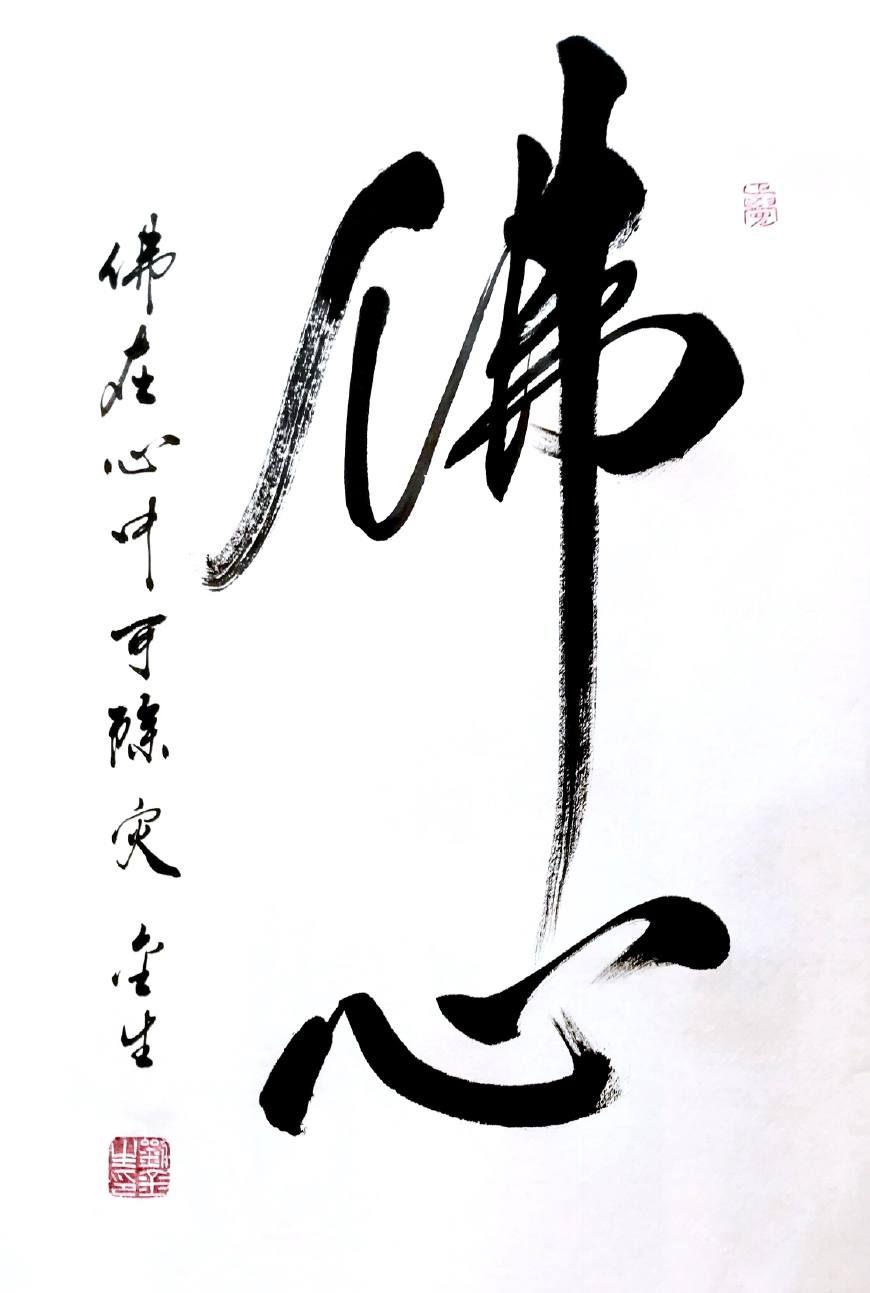 佛心
佛在心中可除灾
金生